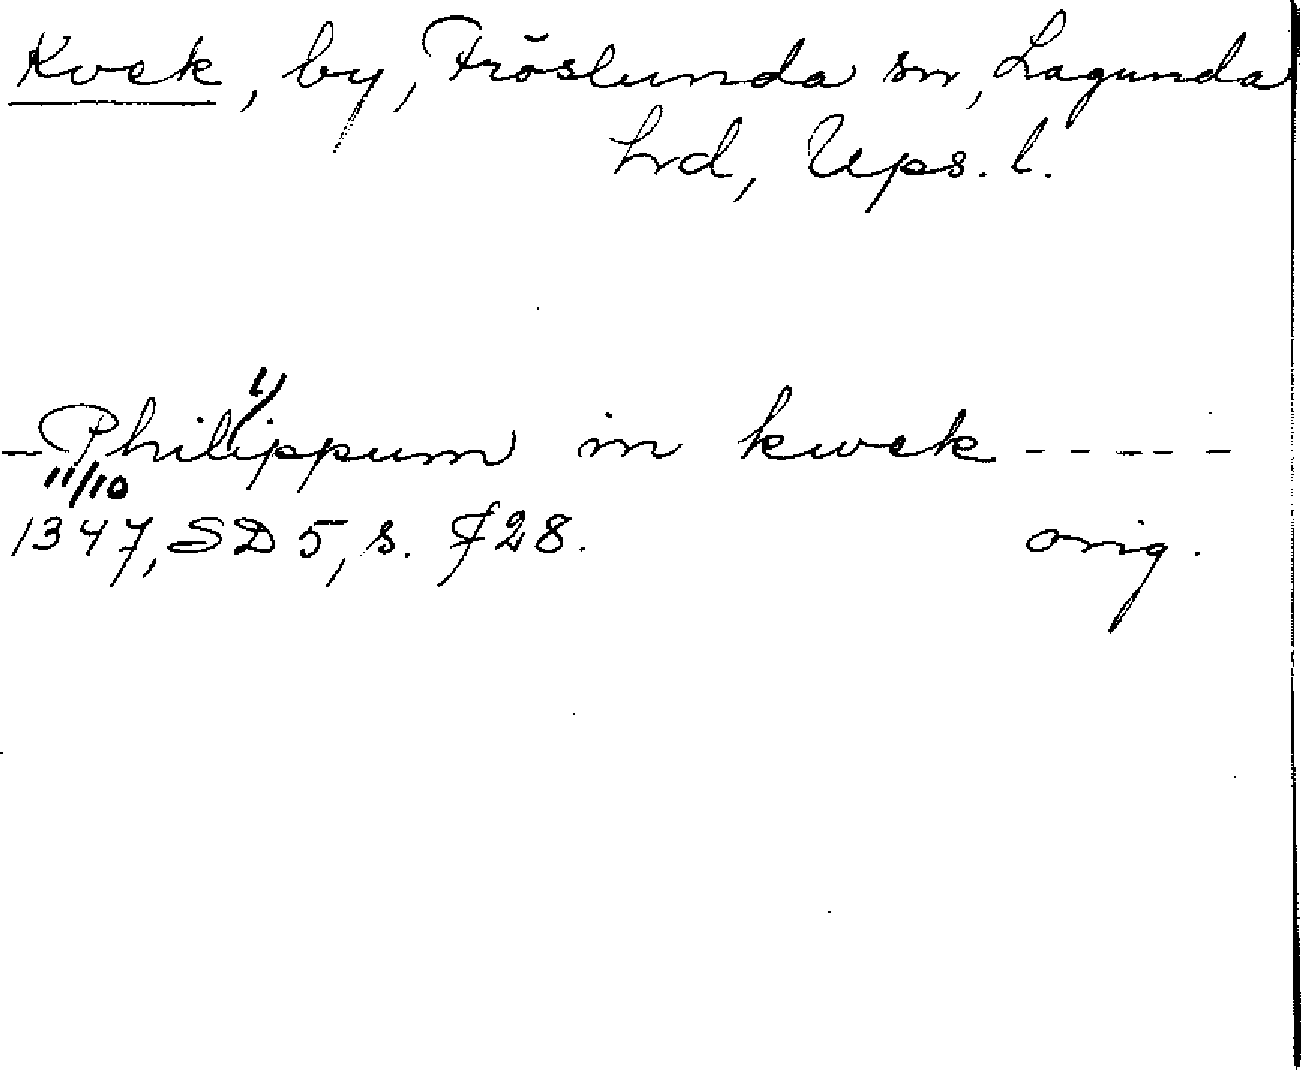 Kvek, by, Fröslunda sn, Lagunda
hrd, Ups. l.
- Philippum in kwek - - - - -
11/10
1347, SD 5, s. 728. orig.